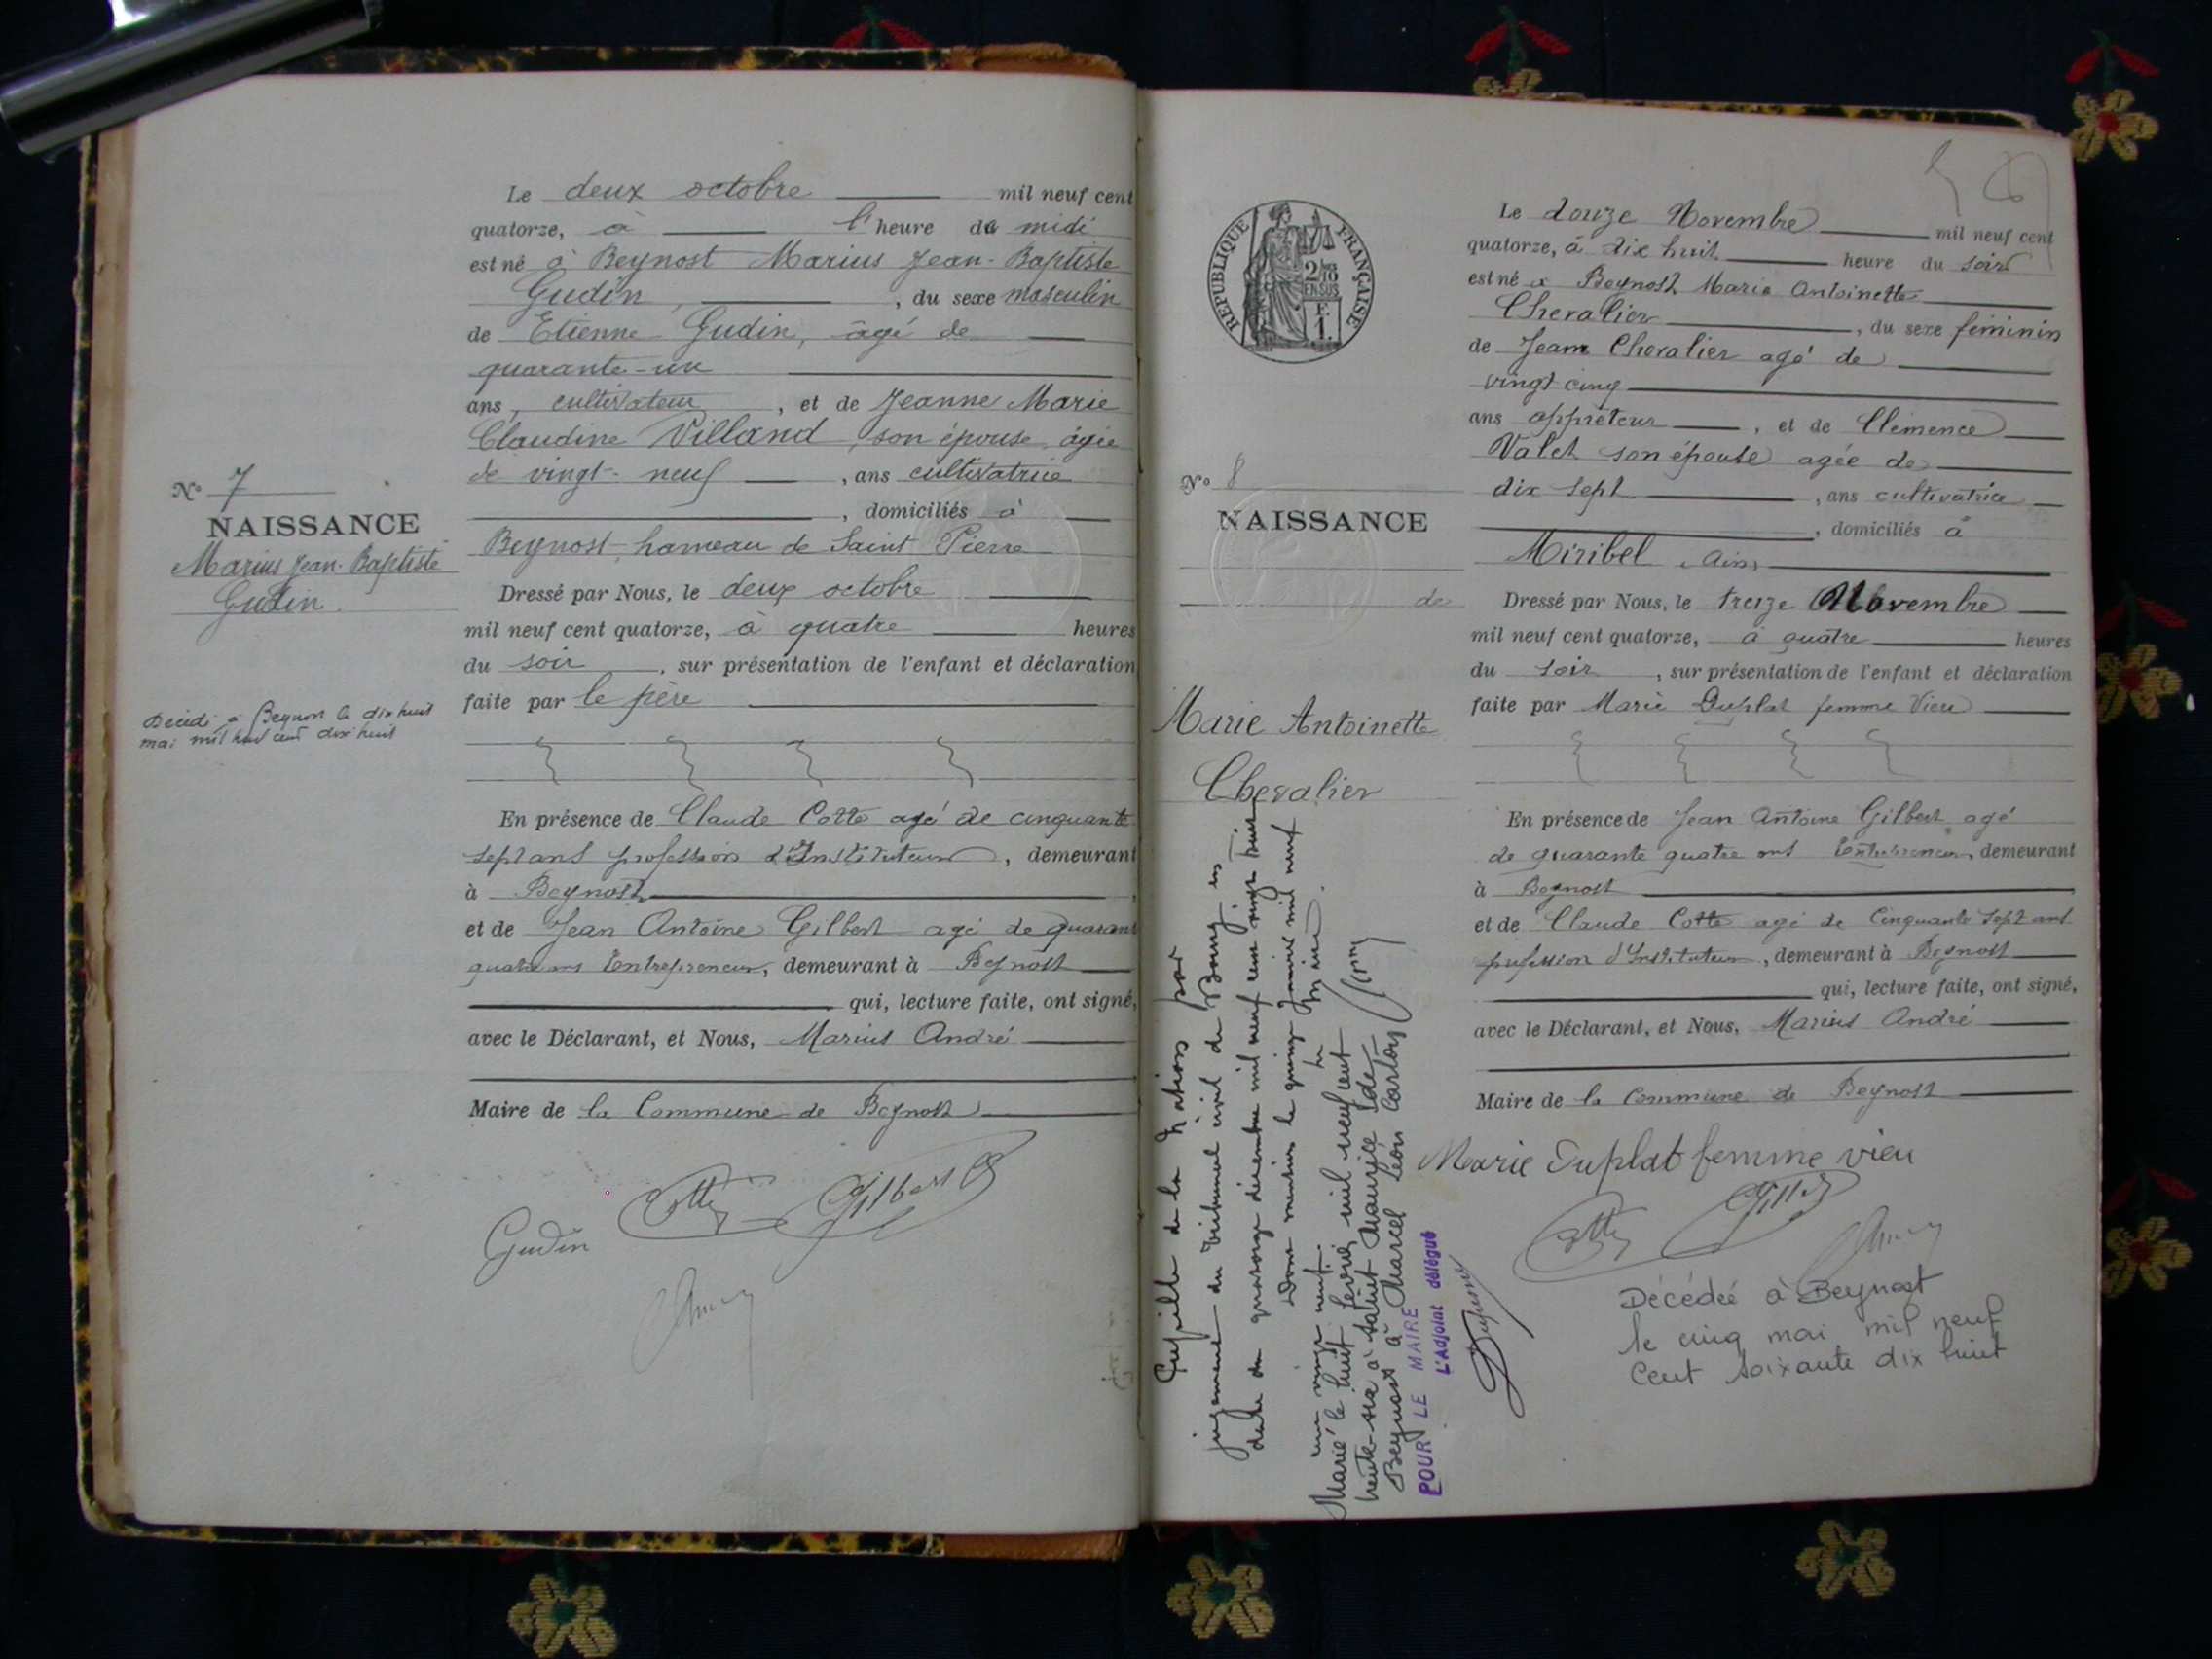 Le deux octobre mil neuf cent
quatorze, à l'heure de midi
est né à Beynost Marius Jean-Baptiste
Gudin, du sexe masculin
de Etienne Gudin, âgé de
quarante-un
ans, cultivateur, et de Jeanne Marie
Claudine Villand, son épouse, âgée
de vingt-neuf, ans cultivatrice
, domiciliés à
Beynost, hameau de Saint Pierre
Dressé par Nous, le deux octobre
mil neuf cent quatorze, à quatre heures
du soir, sur présentation de l'enfant et déclaration
faite par le père
En présence de Claude Cotte agé de cinquante
sept ans profession d'Instituteur, demeurant
à Beynost
et de Jean Antoine Gilbert agé de quarant
quatre ans Entrepreneur, demeurant à Beynost
qui, lecture faite, ont signé,
avec le Déclarant, et Nous, Marius André
Maire de la Commune de Beynost
Gudin Cotte Gilbert
N° 7
NAISSANCE
Marius Jean-Baptiste
Gudin.
Décédé à Beynost le dix huit
mai mil huit cent dix huit
RÉPUBLIQUE FRANÇAISE
2/10
EN SUS
F.
1.
Le douze Novembre mil neuf cent
quatorze, à dix huit heure du soir
est né a Beynost Marie Antoinette
Chevalier, du sexe féminin
de Jean Chevalier agé de
vingt cinq
ans apprêteur, et de Clémence
Valet son épouse agée de
dix sept, ans cultivatrice
, domiciliés à
Miribel, Ain,
Dressé par Nous, le treize Novembre
mil neuf cent quatorze, à quatre heures
du soir, sur présentation de l'enfant et déclaration
faite par Marie Duplat femme Vieu
En présence de Jean Antoine Gilbert agé
de quarante quatre ans Entrepreneur demeurant
à Beynost
et de Claude Cotte agé de Cinquante sept ans
profession d'Instituteur, demeurant à Beynost
qui, lecture faite, ont signé,
avec le Déclarant, et Nous, Marius André
Maire de la Commune de Beynost
Marie Duplat femme vieu
Cotte
Décédée à Beynost
le cinq mai mil neuf
Cent soixante dix huit
N° 8
NAISSANCE
de
Marie Antoinette
Chevalier
Pupille de la Nation par
jugement du tribunal civil de Bourg en
date du quatorze décembre mil neuf cent vingt huit
Dont mention le quinze Janvier mil neuf
cent vingt neuf. Le Maire.
Marié le huit février mil neuf cent
trente-six à Maurice
Beynost à Marcel Léon
POUR LE MAIRE
L'Adjoint délégué